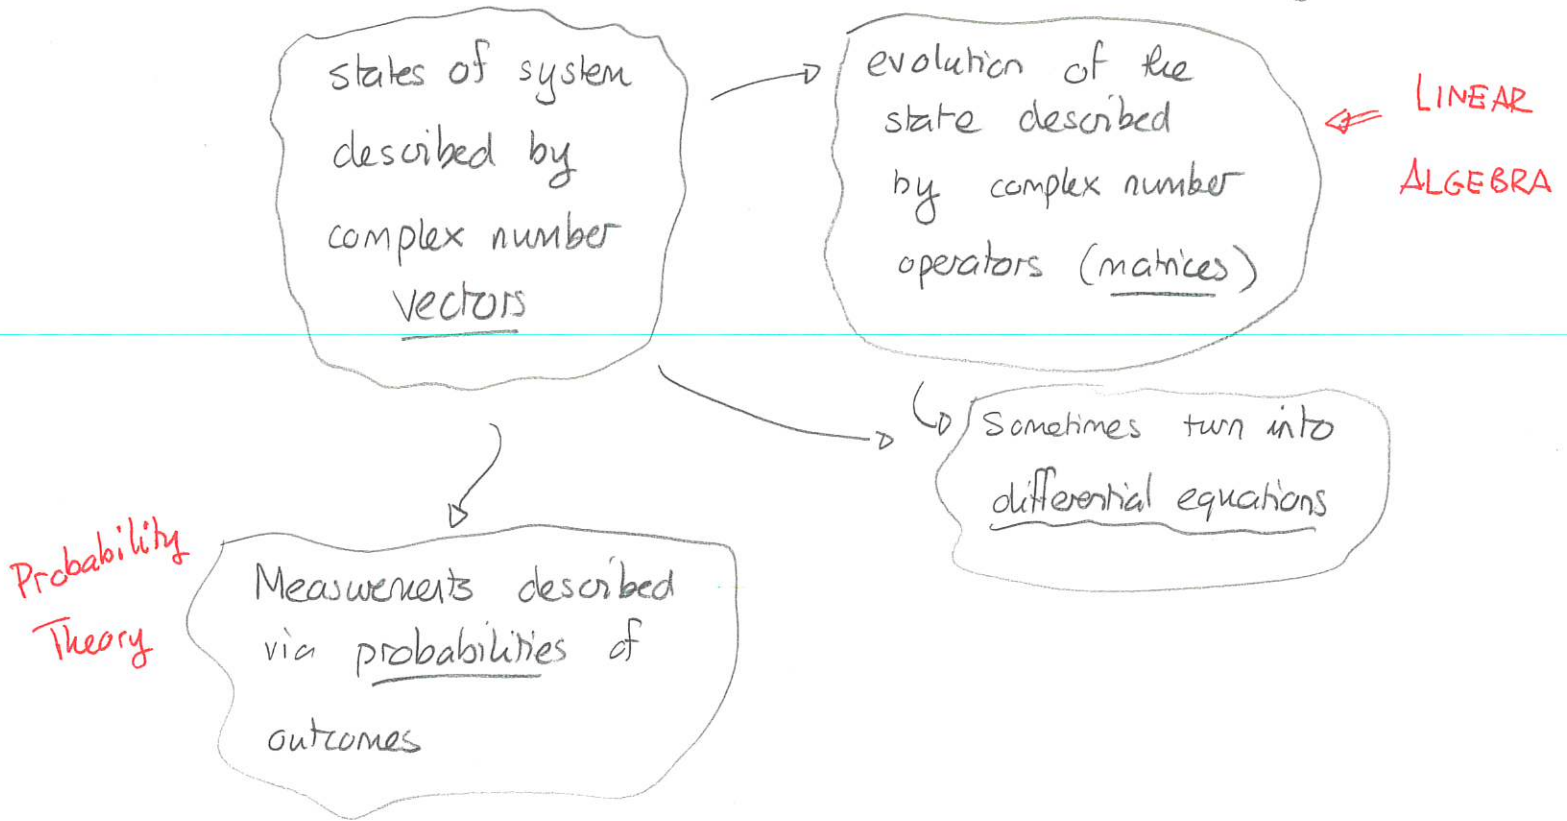 states of system
described by
complex number
vectors
evolution of the
state described
by complex number
operators (matrices)
LINEAR
ALGEBRA
Sometimes turn into
differential equations
Probability
Theory
Measurements described
via probabilities of
outcomes